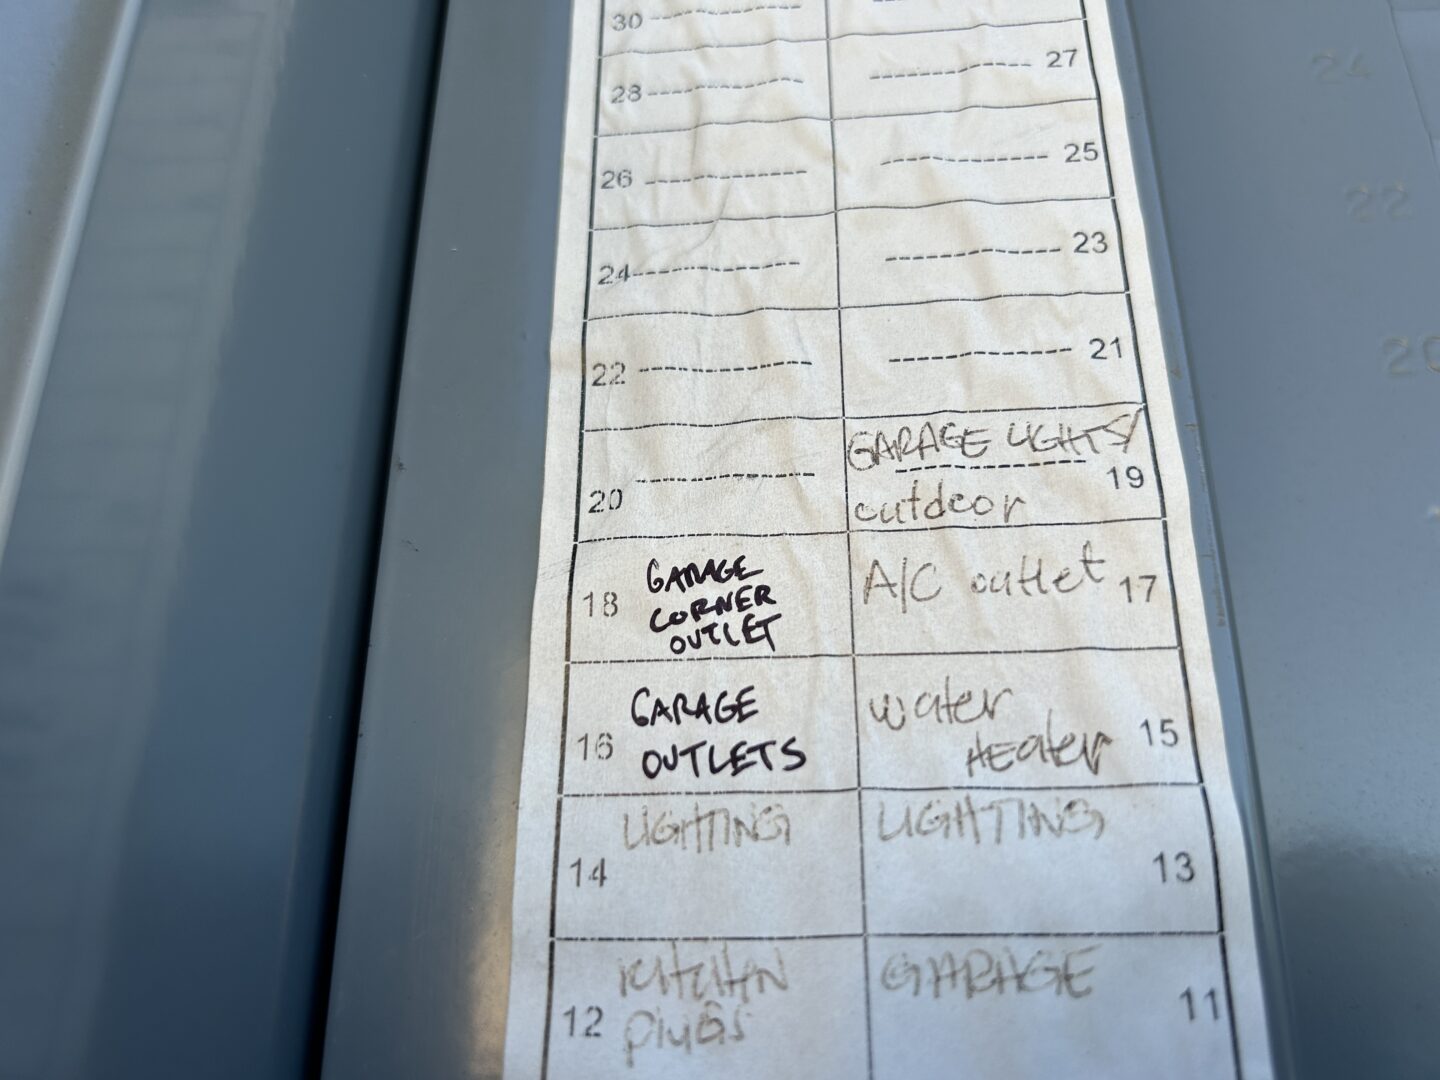 30
28
27
26
25
24
23
22
21
20
GARAGE LIGHTS/
outdoor
19
18
GARAGE
CORNER
OUTLET
A/C outlet 17
16
GARAGE
OUTLETS
water
HEater
15
14
LIGHTING
LIGHTING
13
12
KITCHIN
plugs
GARAGE
11
24
22
20